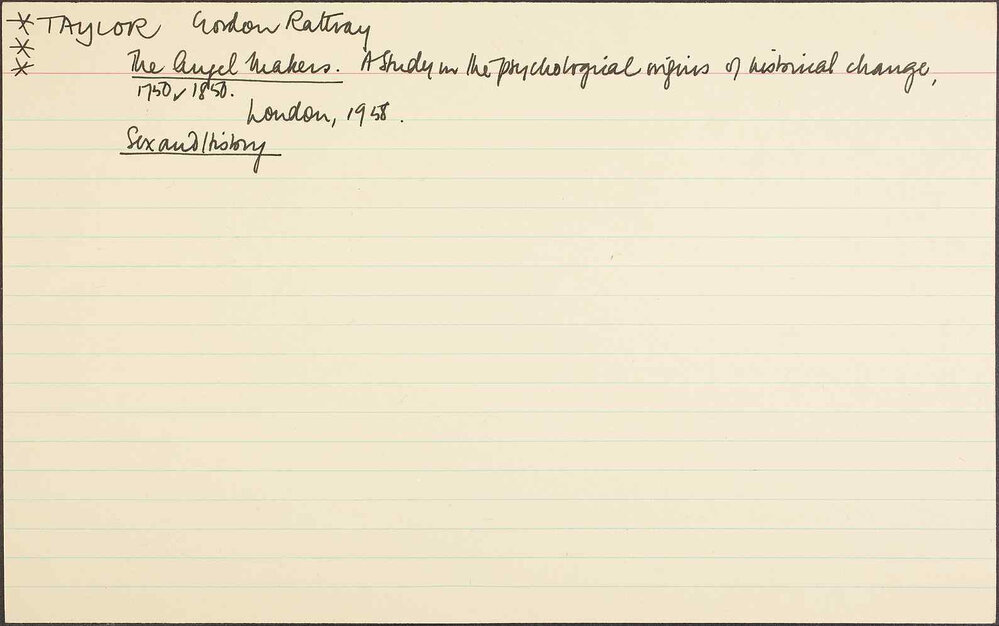 * TAYLOR Gordon Rattray
*
* The Angel Makers. A Study in the psychological origins of historical change,
1750-1850.
London, 1958.
Sex and History